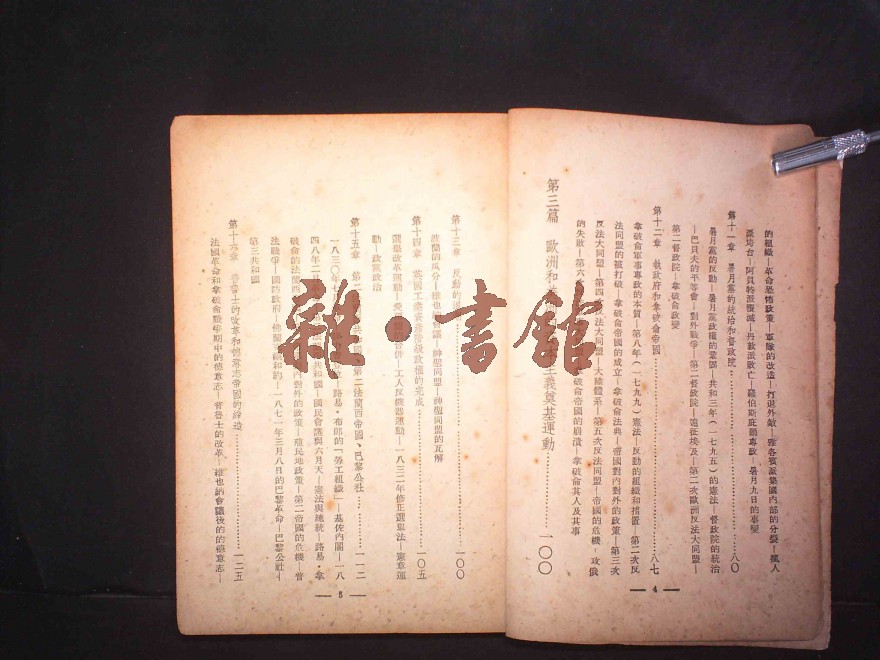 的組織—革命恐怖政策—軍隊的改造—打退外敵—雅各賓派集團內部的分裂—瘋人
派垮台—阿貝特派覆滅—丹敦派敗亡—羅伯斯庇爾專政—暑月九日的事變
第十一章 暑月黨的統治和督政院 八〇
暑月黨的反動—暑月黨政權的鞏固—共和三年（一七九五）的憲法—督政院的統治
—巴貝夫的平等會—對外戰爭—第二督政院—遠征埃及—第二次歐洲反法大同盟—
第二督政院—拿破侖政變
第十二章 執政府和拿破侖帝國 八七
拿破侖軍事專政的本質—第八年（一七九九）憲法—反動的組織和措置—第二次反
法同盟的被打破—拿破侖帝國的成立—拿破侖法典—帝國對內對外的政策—第三次
反法大同盟—第四 反法大同盟—大陸體系—第五次反法同盟—帝國的危機，攻俄
的失敗—第六 拿破侖帝國的崩潰—拿破侖其人及其事
第三篇 歐洲和 主義奠基運動 一〇〇
— 4 —
第十三章 反動的 一〇〇
波蘭的瓜分—維也納會議—神聖同盟—神聖同盟的瓦解
第十四章 英國工業資產階級政權的完成 一〇五
選舉改革運動—愛 合併—工人反機器運動—一八三二年修正選舉法—憲章運
動—政黨政治
第十五章 第二 共和國、第二法蘭西帝國、巴黎公社 一一二
一八三〇年七 路易·布郎的「勞工組織」—基佐內閣—一八
四八年二月 共和國—國民會議與六月天—憲法與總統—路易·拿
破侖的法蘭 對外的政策—殖民地政策—第二帝國的危機—普
法戰爭—國防政府—佛蘭克福和約—一八七一年三月八日的巴黎革命—巴黎公社—
第三共和國
第十六章 普魯士的改革和德意志帝國的締造 一二五
法國革命和拿破侖戰爭期中的德意志—普魯士的改革—維也納會議後的德意志—
— 5 —
雜·書館